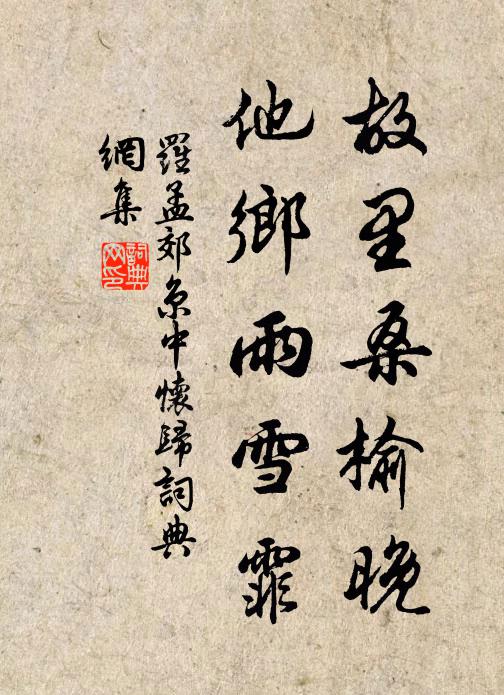 故里桑榆晚
他鄉雨雪霏
羅孟郊京中懷歸詞典
網集
詞典
网印